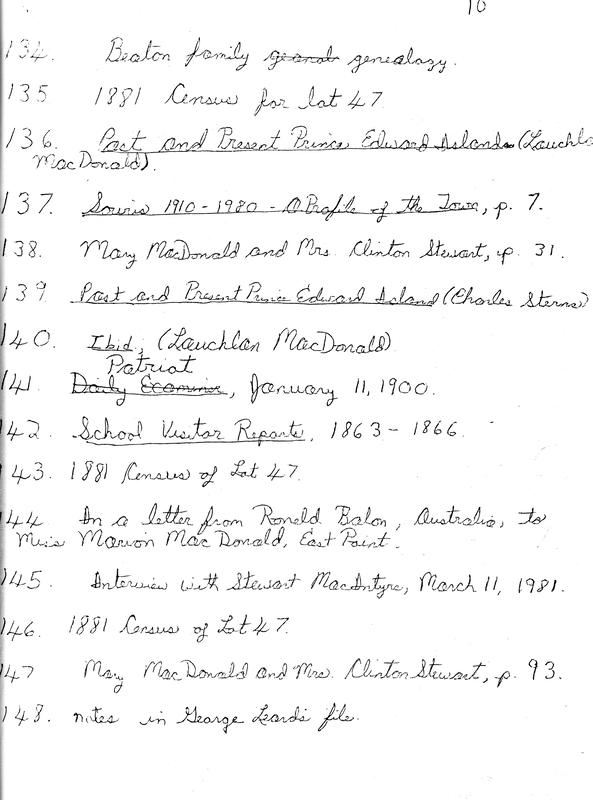 10
134. Beaton family genealogy.
135 1881 Census for lot 47
136. Past and Present Prince Edward Island (Lauchla
MacDonald).
137. Souris 1910-1980 - A Profile of the Town, p. 7.
138. Mary MacDonald and Mrs. Clinton Stewart, p. 31.
139 Past and Present Prince Edward Island (Charles Sterns)
140. Ibid, (Lauchlan MacDonald)
Patriot
141. Daily Examiner, January 11, 1900.
142. School Visitor Reports, 1863-1866.
143. 1881 Census of Lot 47.
144 In a letter from Ronald Balon, Australia, to
Miss Marion MacDonald, East Point.
145. Interview with Stewart MacIntyre, March 11, 1981.
146. 1881 Census of Lot 47.
147 Mary MacDonald and Mrs. Clinton Stewart, p. 93.
148. notes in George Leard's file.